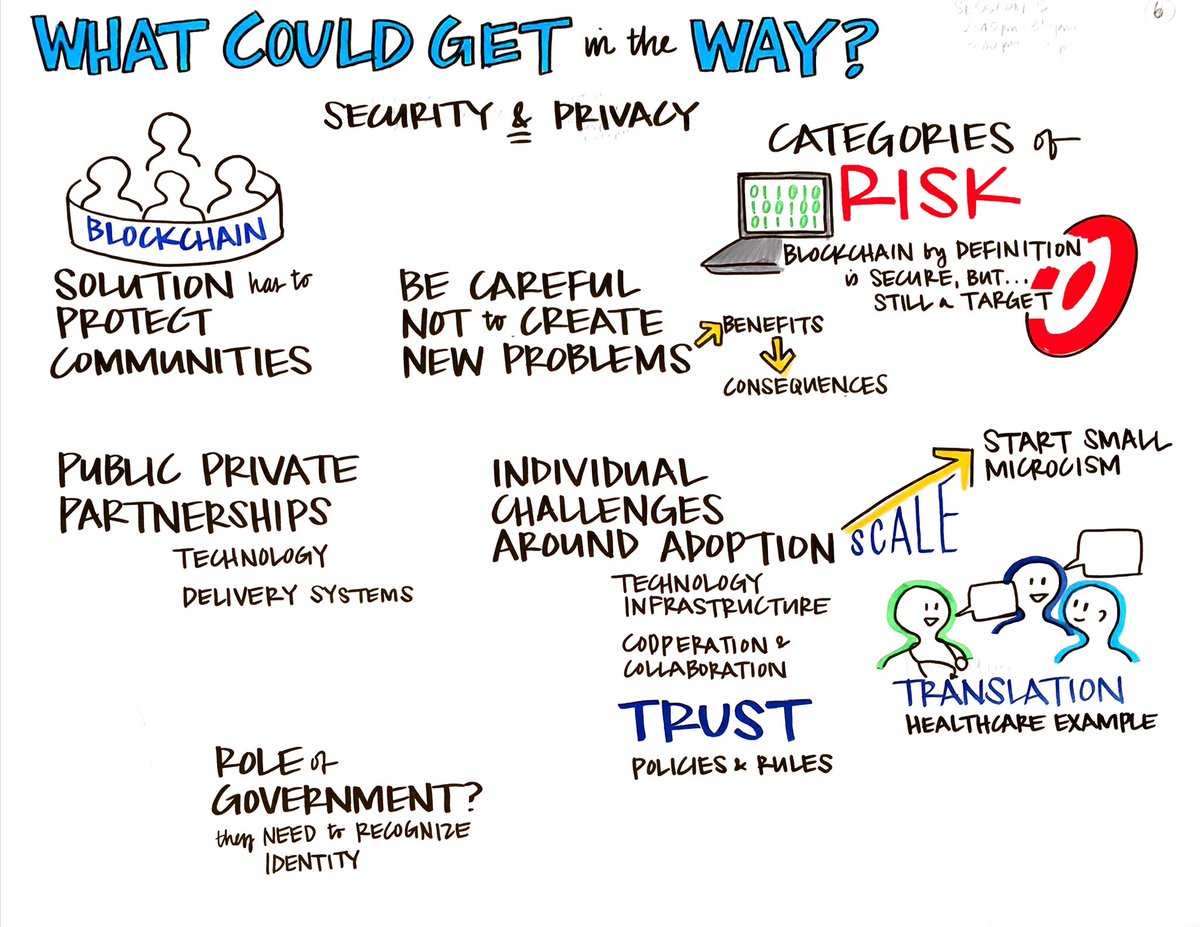 WHAT COULD GET in the WAY?
6
SECURITY & PRIVACY
BLOCKCHAIN
SOLUTION has to
PROTECT
COMMUNITIES
BE CAREFUL
NOT to CREATE
NEW PROBLEMS
BENEFITS
CONSEQUENCES
CATEGORIES of
RISK
011010
100100
011101
BLOCKCHAIN by DEFINITION
is SECURE, BUT...
STILL a TARGET
PUBLIC PRIVATE
PARTNERSHIPS
TECHNOLOGY
DELIVERY SYSTEMS
INDIVIDUAL
CHALLENGES
AROUND ADOPTION
SCALE
START SMALL
MICROCISM
TECHNOLOGY
INFRASTRUCTURE
COOPERATION &
COLLABORATION
TRUST
POLICIES & RULES
TRANSLATION
HEALTHCARE EXAMPLE
ROLE of
GOVERNMENT?
they NEED to RECOGNIZE
IDENTITY